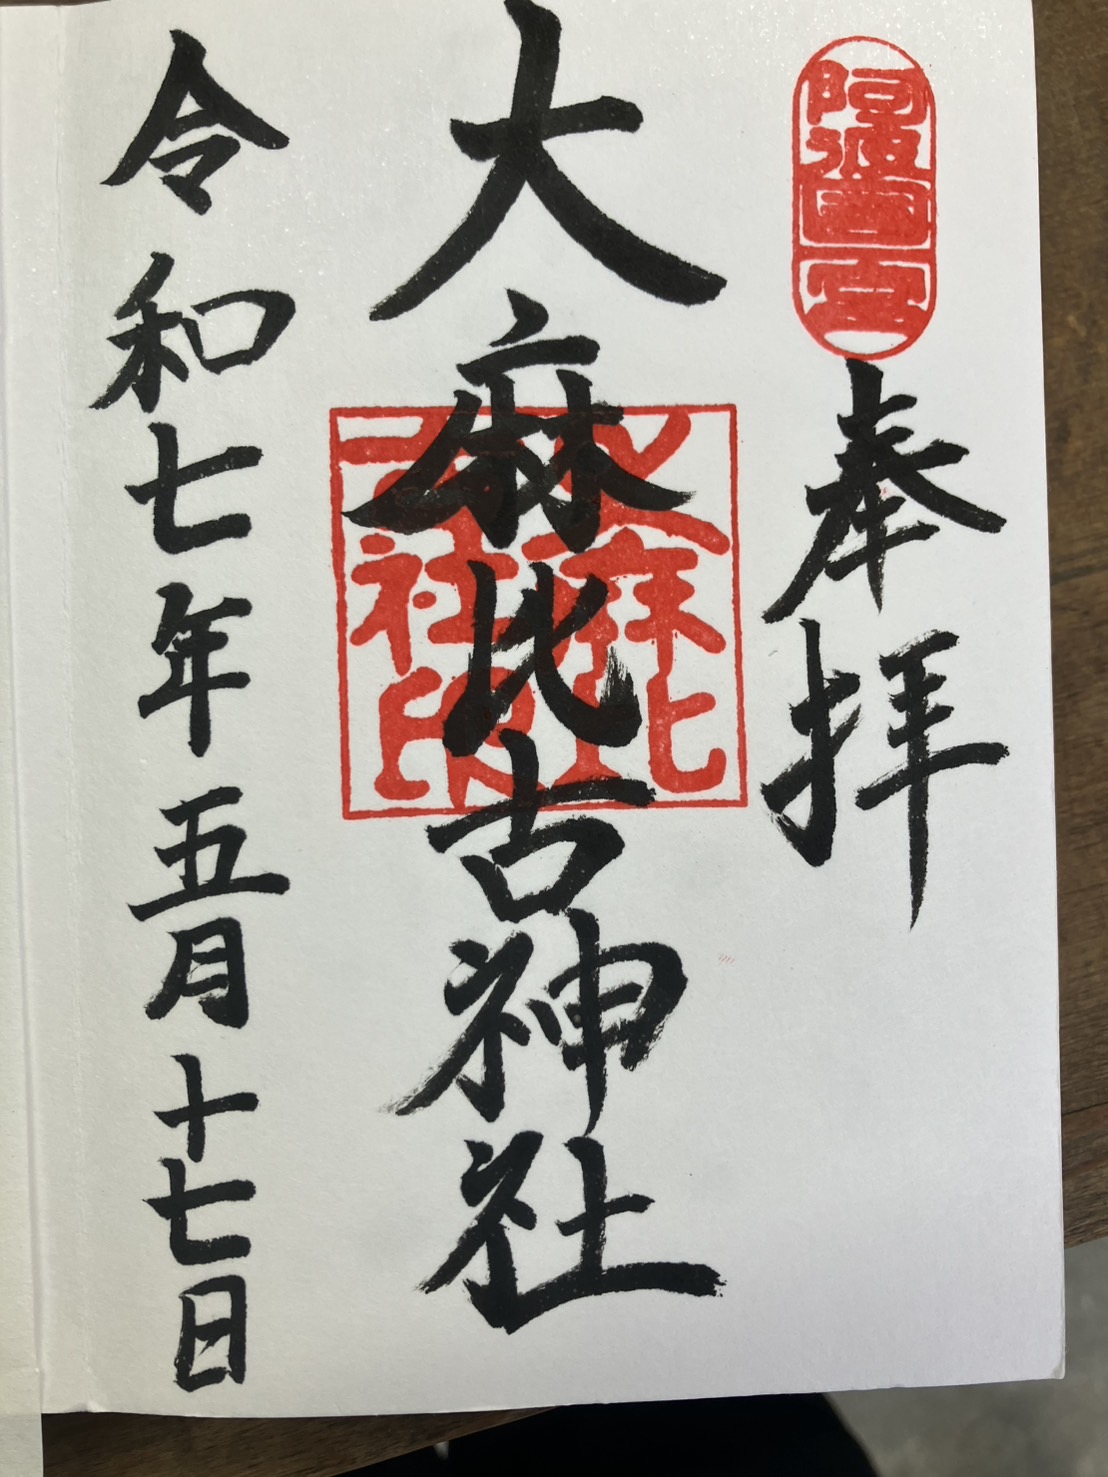 阿波國一宮
奉拝
大麻比古神社
大麻比
古社印
令和七年五月十七日